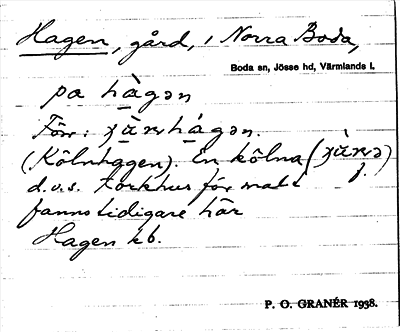 Hagen, gård, i Norra Boda,
Boda sn, Jösse hd, Värmlands l.
på hàgən
Förr:
(Kölnhagen). En kölna
d.v.s. torkhus för malt
fanns tidigare här
Hagen kb.
P. O. GRANÉR 1938.